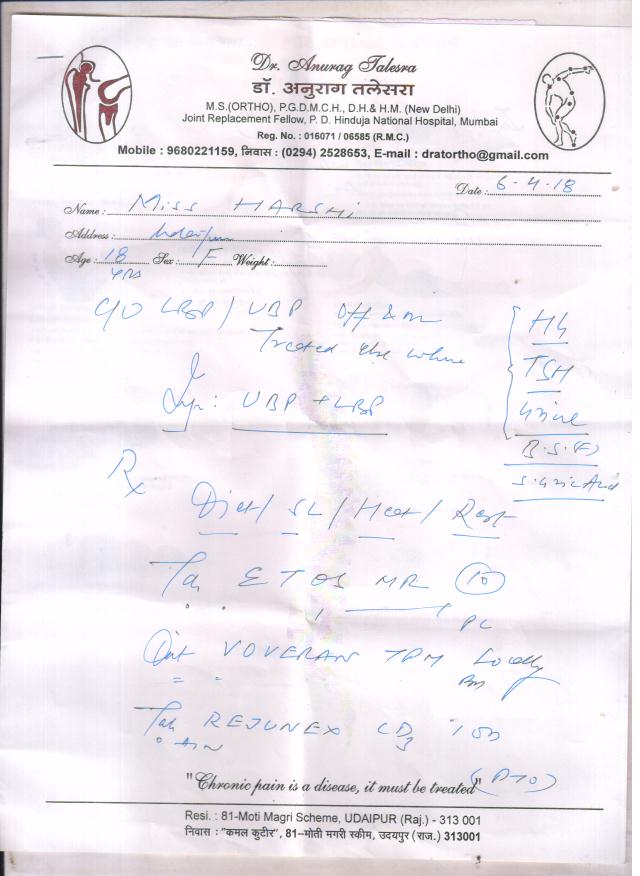 Dr. Anurag Talesra
डॉ. अनुराग तलेसरा
M.S.(ORTHO), P.G.D.M.C.H., D.H.& H.M. (New Delhi)
Joint Replacement Fellow, P. D. Hinduja National Hospital, Mumbai
Reg. No. : 016071 / 06585 (R.M.C.)
Mobile : 9680221159, निवास : (0294) 2528653, E-mail : dratortho@gmail.com
Date : 6-4-18
Name : Miss HARSHI
Address : Udaipur
Age : 18 yrs Sex : F Weight :
C/O LBP / UBP Off & on
Treated Else where
Hb
TSH
Urine
B.S.(F)
S. Uric Acid
Imp: UBP + LBP
Rx
Diet / SL / Heat / Rest
Tab ETOS MR 10
PC
Oint VOVERAN TPM Locally
Tab REJUNEX CD3 1 OD
(PTO)
"Chronic pain is a disease, it must be treated"
Resi. : 81-Moti Magri Scheme, UDAIPUR (Raj.) - 313 001
निवास : "कमल कुटीर", 81–मोती मगरी स्कीम, उदयपुर (राज.) 313001